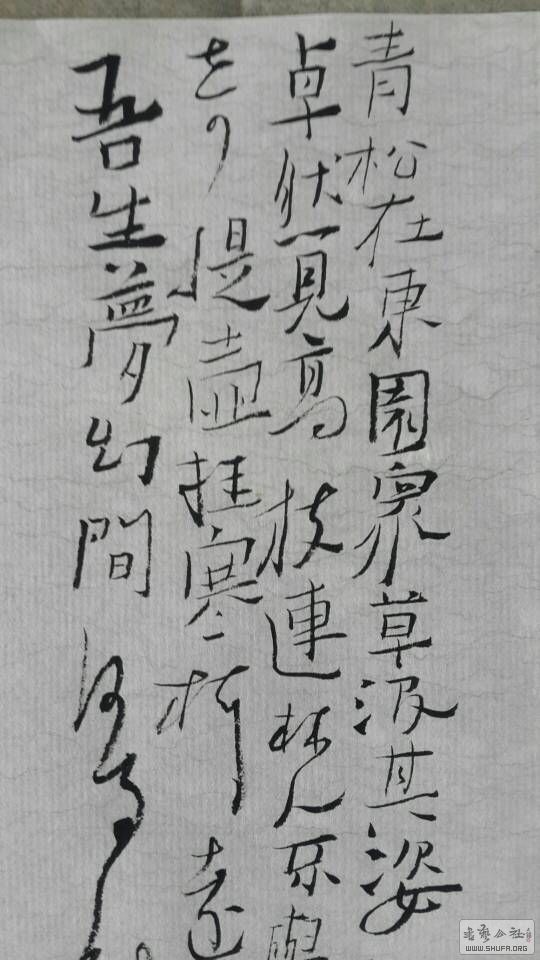 青松在東園衆草没其姿
卓然見高枝連林人不
奇提壺挂寒柯遠
吾生夢幻間何事
書藝公社
WWW.SHUFA.ORG